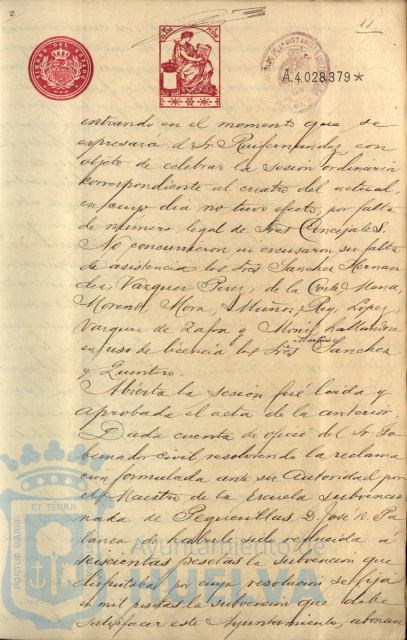 2
11
A.4.028.379*
entrando en el momento que se
expresará el Sr. Ruifernandez, con
objeto de celebrar la sesión ordinaria
correspondiente al cuatro del actual,
en cuyo dia no tuvo efecto, por falta
de numero legal de Sres Concejales.
No concurrieron ni excusaron su falta
de asistencia los Sres Sanchez Hernan
dez, Vazquez Perez, de la Corte Mena,
Moreno, Mora, Muñoz, Rey, Lopez,
Vazquez de Zafra y
en uso de licencia los Sres Martinez Sanchez
y Quintero.
Abierta la sesión fué leida y
aprobada el acta de la anterior.
Dada cuenta de oficio del Sr. Go
bernador civil resolviendo la reclama
cion formulada ante su Autoridad por
el Maestro de la Escuela subvencio
nada de Peguerillas, D. José R. Pa
lanco, de haberle sido reducida á
seiscientas pesetas la subvencion que
disfrutaba, por cuya resolucion se fija
en mil pesetas la subvencion que debe
satisfacer este Ayuntamiento,
PORTUS MARIS
ET TERRAE
Ayuntamiento de
HUELVA